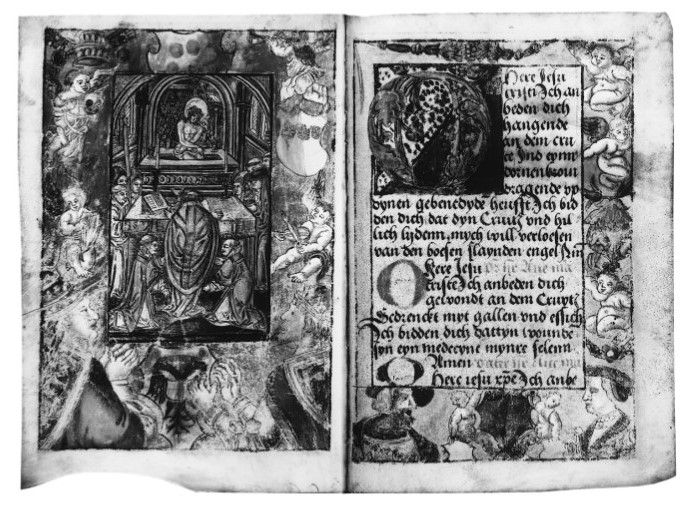 Here Jesu
cristi Ich an
beden dich
hangende
an dem cru
ce Ind eyny
dornenkron
dragende vp
dynen gebenedyde heufft Ich bid
den dich dat dyn Cruitz vnd hil
lich lydenn mych will verloesen
van den boesen slaynden engel
Here Jesu
Criste Ich anbeden dich
gewondt an dem Cruytz
Gedrenckt myt gallen vnd essich
Ich bidden dich dat dyn wounde
syn eyn medecyne mynre selenn
Amen
Here iesu xpe Ich anbe